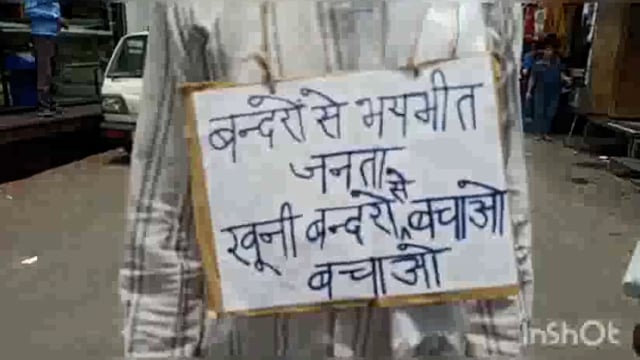 बन्दरों से भयभीत
जनता
खूनी बन्दरों से बचाओ
बचाओ
InShOt